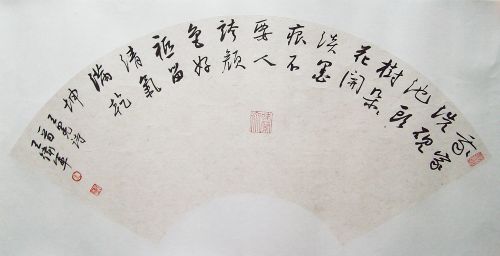 吾家
洗硯
池頭
樹朵々
花開
淡墨
痕不
要人
誇顏
色好
祗留
清氣
滿乾
坤
王冕詩
一首